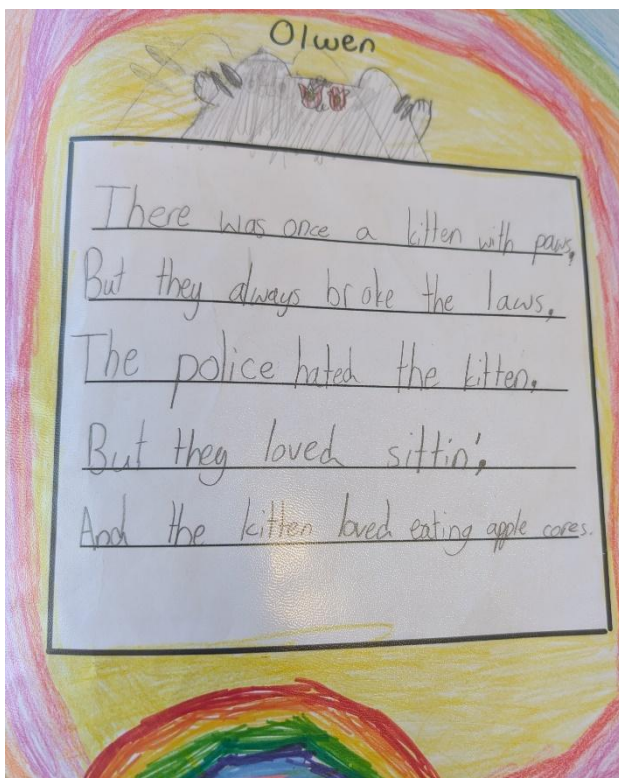 Olwen
There was once a kitten with paws,
But they always broke the laws,
The police hated the kitten,
But they loved sittin',
And the kitten loved eating apple cores.